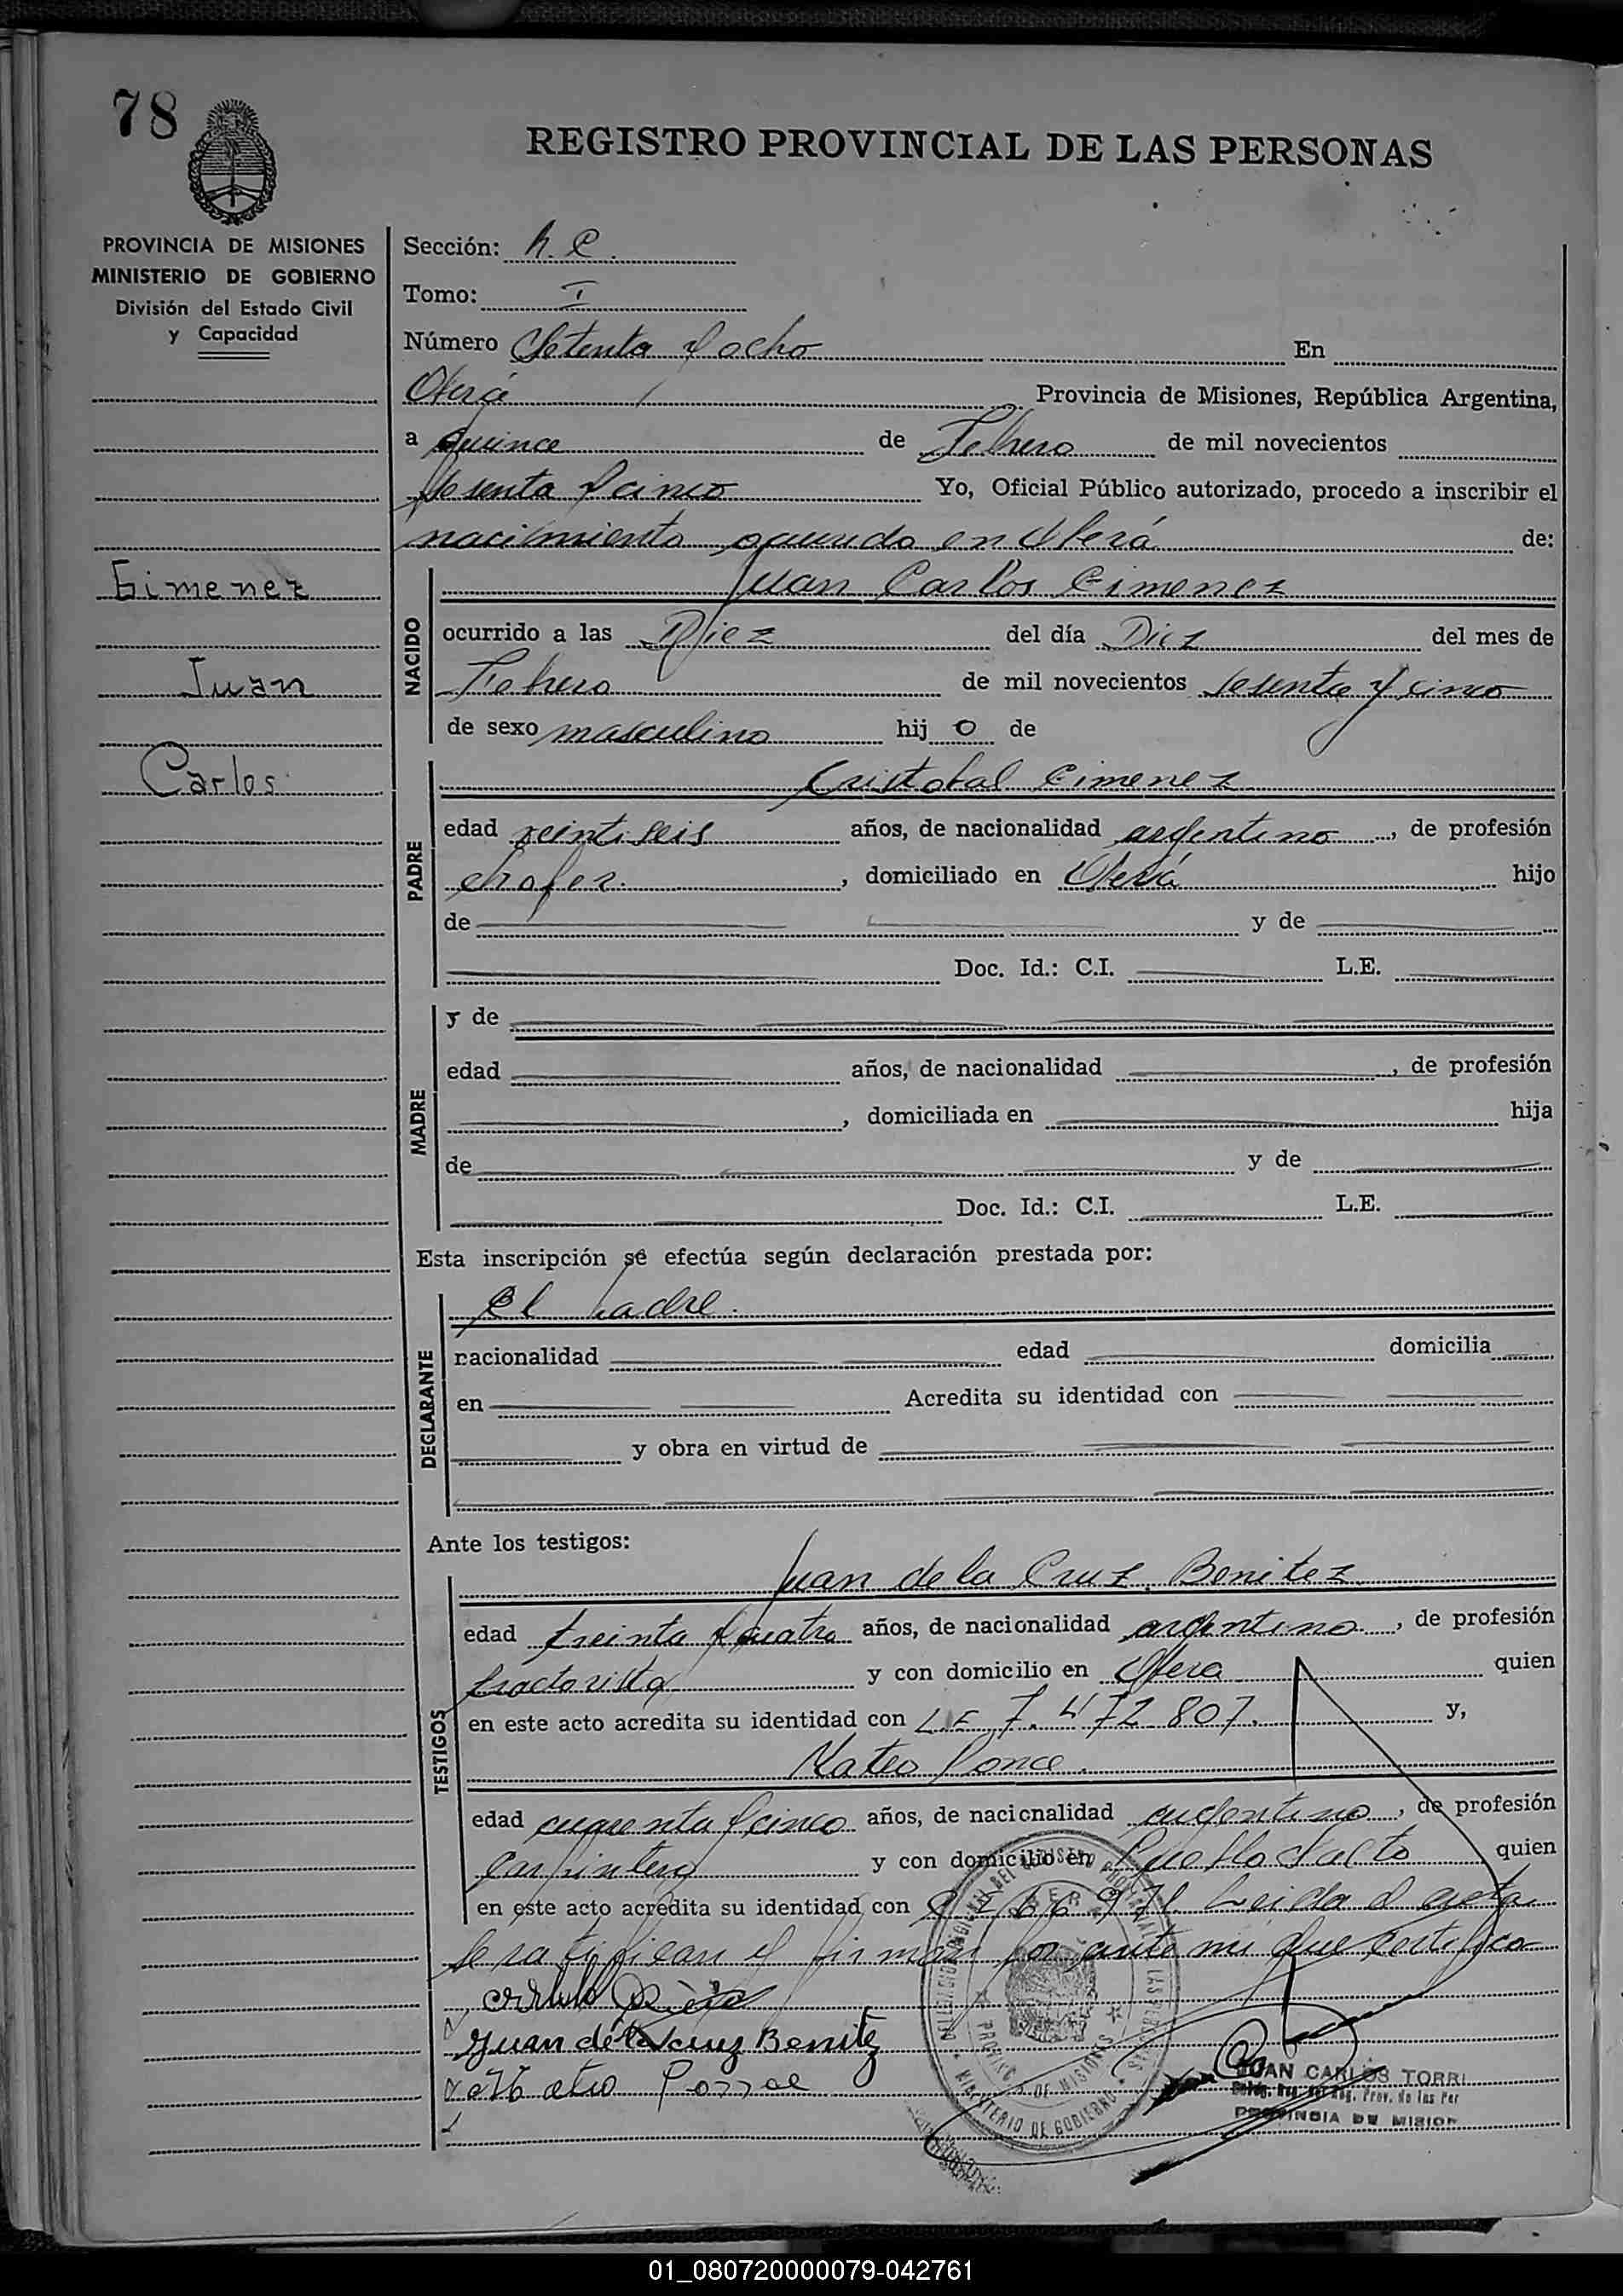 78
REGISTRO PROVINCIAL DE LAS PERSONAS
PROVINCIA DE MISIONES
MINISTERIO DE GOBIERNO
División del Estado Civil
y Capacidad
Gimenez
Juan
Carlos
Sección:
Tomo: I
Número Setenta y ocho En
Oberá Provincia de Misiones, República Argentina,
a quince de Febrero de mil novecientos
sesenta y cinco Yo, Oficial Público autorizado, procedo a inscribir el
nacimiento ocurrido en Oberá de:
NACIDO
Juan Carlos Gimenez
ocurrido a las Diez del día Diez del mes de
Febrero de mil novecientos sesenta y cinco
de sexo masculino hijo de
PADRE
Cristobal Gimenez
edad veintiseis años, de nacionalidad argentino, de profesión
chofer. , domiciliado en Oberá hijo
de y de
Doc. Id.: C.I. L.E.
MADRE
y de
edad años, de nacionalidad , de profesión
, domiciliada en hija
de y de
Doc. Id.: C.I. L.E.
Esta inscripción se efectúa según declaración prestada por:
DECLARANTE
El padre.
nacionalidad edad domicilia
en Acredita su identidad con
y obra en virtud de
Ante los testigos:
TESTIGOS
Juan de la Cruz Benitez
edad treinta y cuatro años, de nacionalidad argentino, de profesión
tractorista y con domicilio en Obera quien
en este acto acredita su identidad con L.E 7.472.807. y,
Mateo Ponce.
edad cuarenta y cinco años, de nacionalidad argentino, de profesión
carpintero y con domicilio en Pueblo Salto quien
en este acto acredita su identidad con Leida el acta
se ratifican y firman por ante mi que certifico
Juan de la cruz Benitez
JUAN CARLOS TORRI
PROVINCIA DE MISION
MINISTERIO DE GOBIERNO
PROVINCIA DE MISIONES
01_080720000079-042761